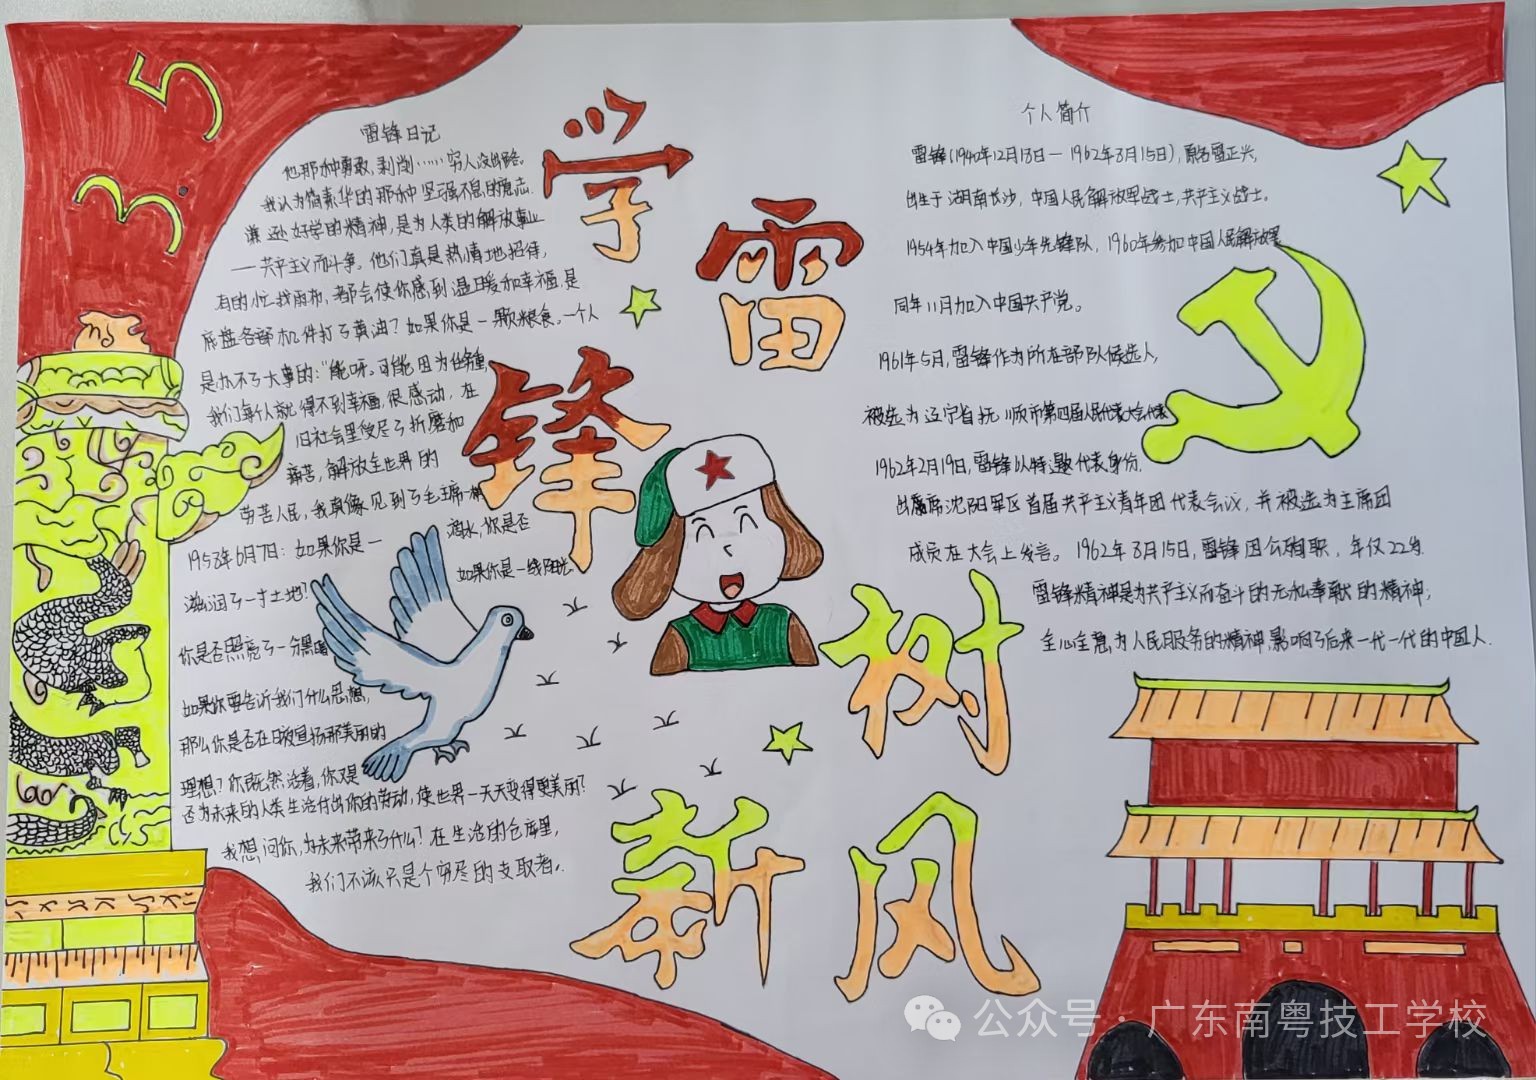 3.5
学
雷
锋
树
新风
雷锋日记
他那种勇敢,剥削……穷人没出路。
我认为简素华的那种坚强不息的意志.
谦逊好学的精神,是为人类的解放事业
——共产主义而斗争。他们真是热情地招待,
有的忙找雨布,都会使你感到温暖和幸福,是
底盘各部机件打了黄油?如果你是一颗粮食。一个人
是办不了大事的:“能呀。可能因为任锺,
我们每个人就得不到幸福,很感动,在
旧社会里受尽了折磨和
痛苦,解放全世界的
劳苦人民,我真像见到了毛主席一样
1953年6月7日:如果你是一
滴水,你是否
滋润了一寸土地?
如果你是一线阳光
你是否照亮了一分黑暗
如果你要告诉我们什么思想,
那么你是否在日夜宣扬那美丽的
理想?你既然活着,你又是
否为未来的人类生活付出你的劳动,使世界一天天变得更美丽?
我想问你,为未来带来了什么?在生活的仓库里,
我们不该只是个穷尽的支取者.
个人简介
雷锋(1940年12月18日—1962年8月15日),原名雷正兴,
出生于湖南长沙,中国人民解放军战士,共产主义战士。
1954年加入中国少年先锋队,1960年参加中国人民解放军
同年11月加入中国共产党。
1961年5月,雷锋作为所在部队候选人,
被选为辽宁省抚顺市第四届人民代表大会代表
1962年2月19日,雷锋以特邀代表身份.
出席沈阳军区首届共产主义青年团代表会议,并被选为主席团
成员在大会上发言。1962年8月15日,雷锋因公殉职,年仅22岁.
雷锋精神是为共产主义而奋斗的无私奉献的精神,
全心全意为人民服务的精神,影响了后来一代一代的中国人.
公众号·广东南粤技工学校